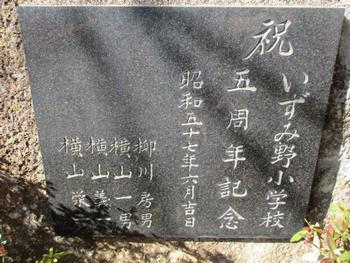 祝いずみ野小学校
五周年記念
昭和五十七年六月吉日
柳川房男
横山一男
横山義一
横山栄一